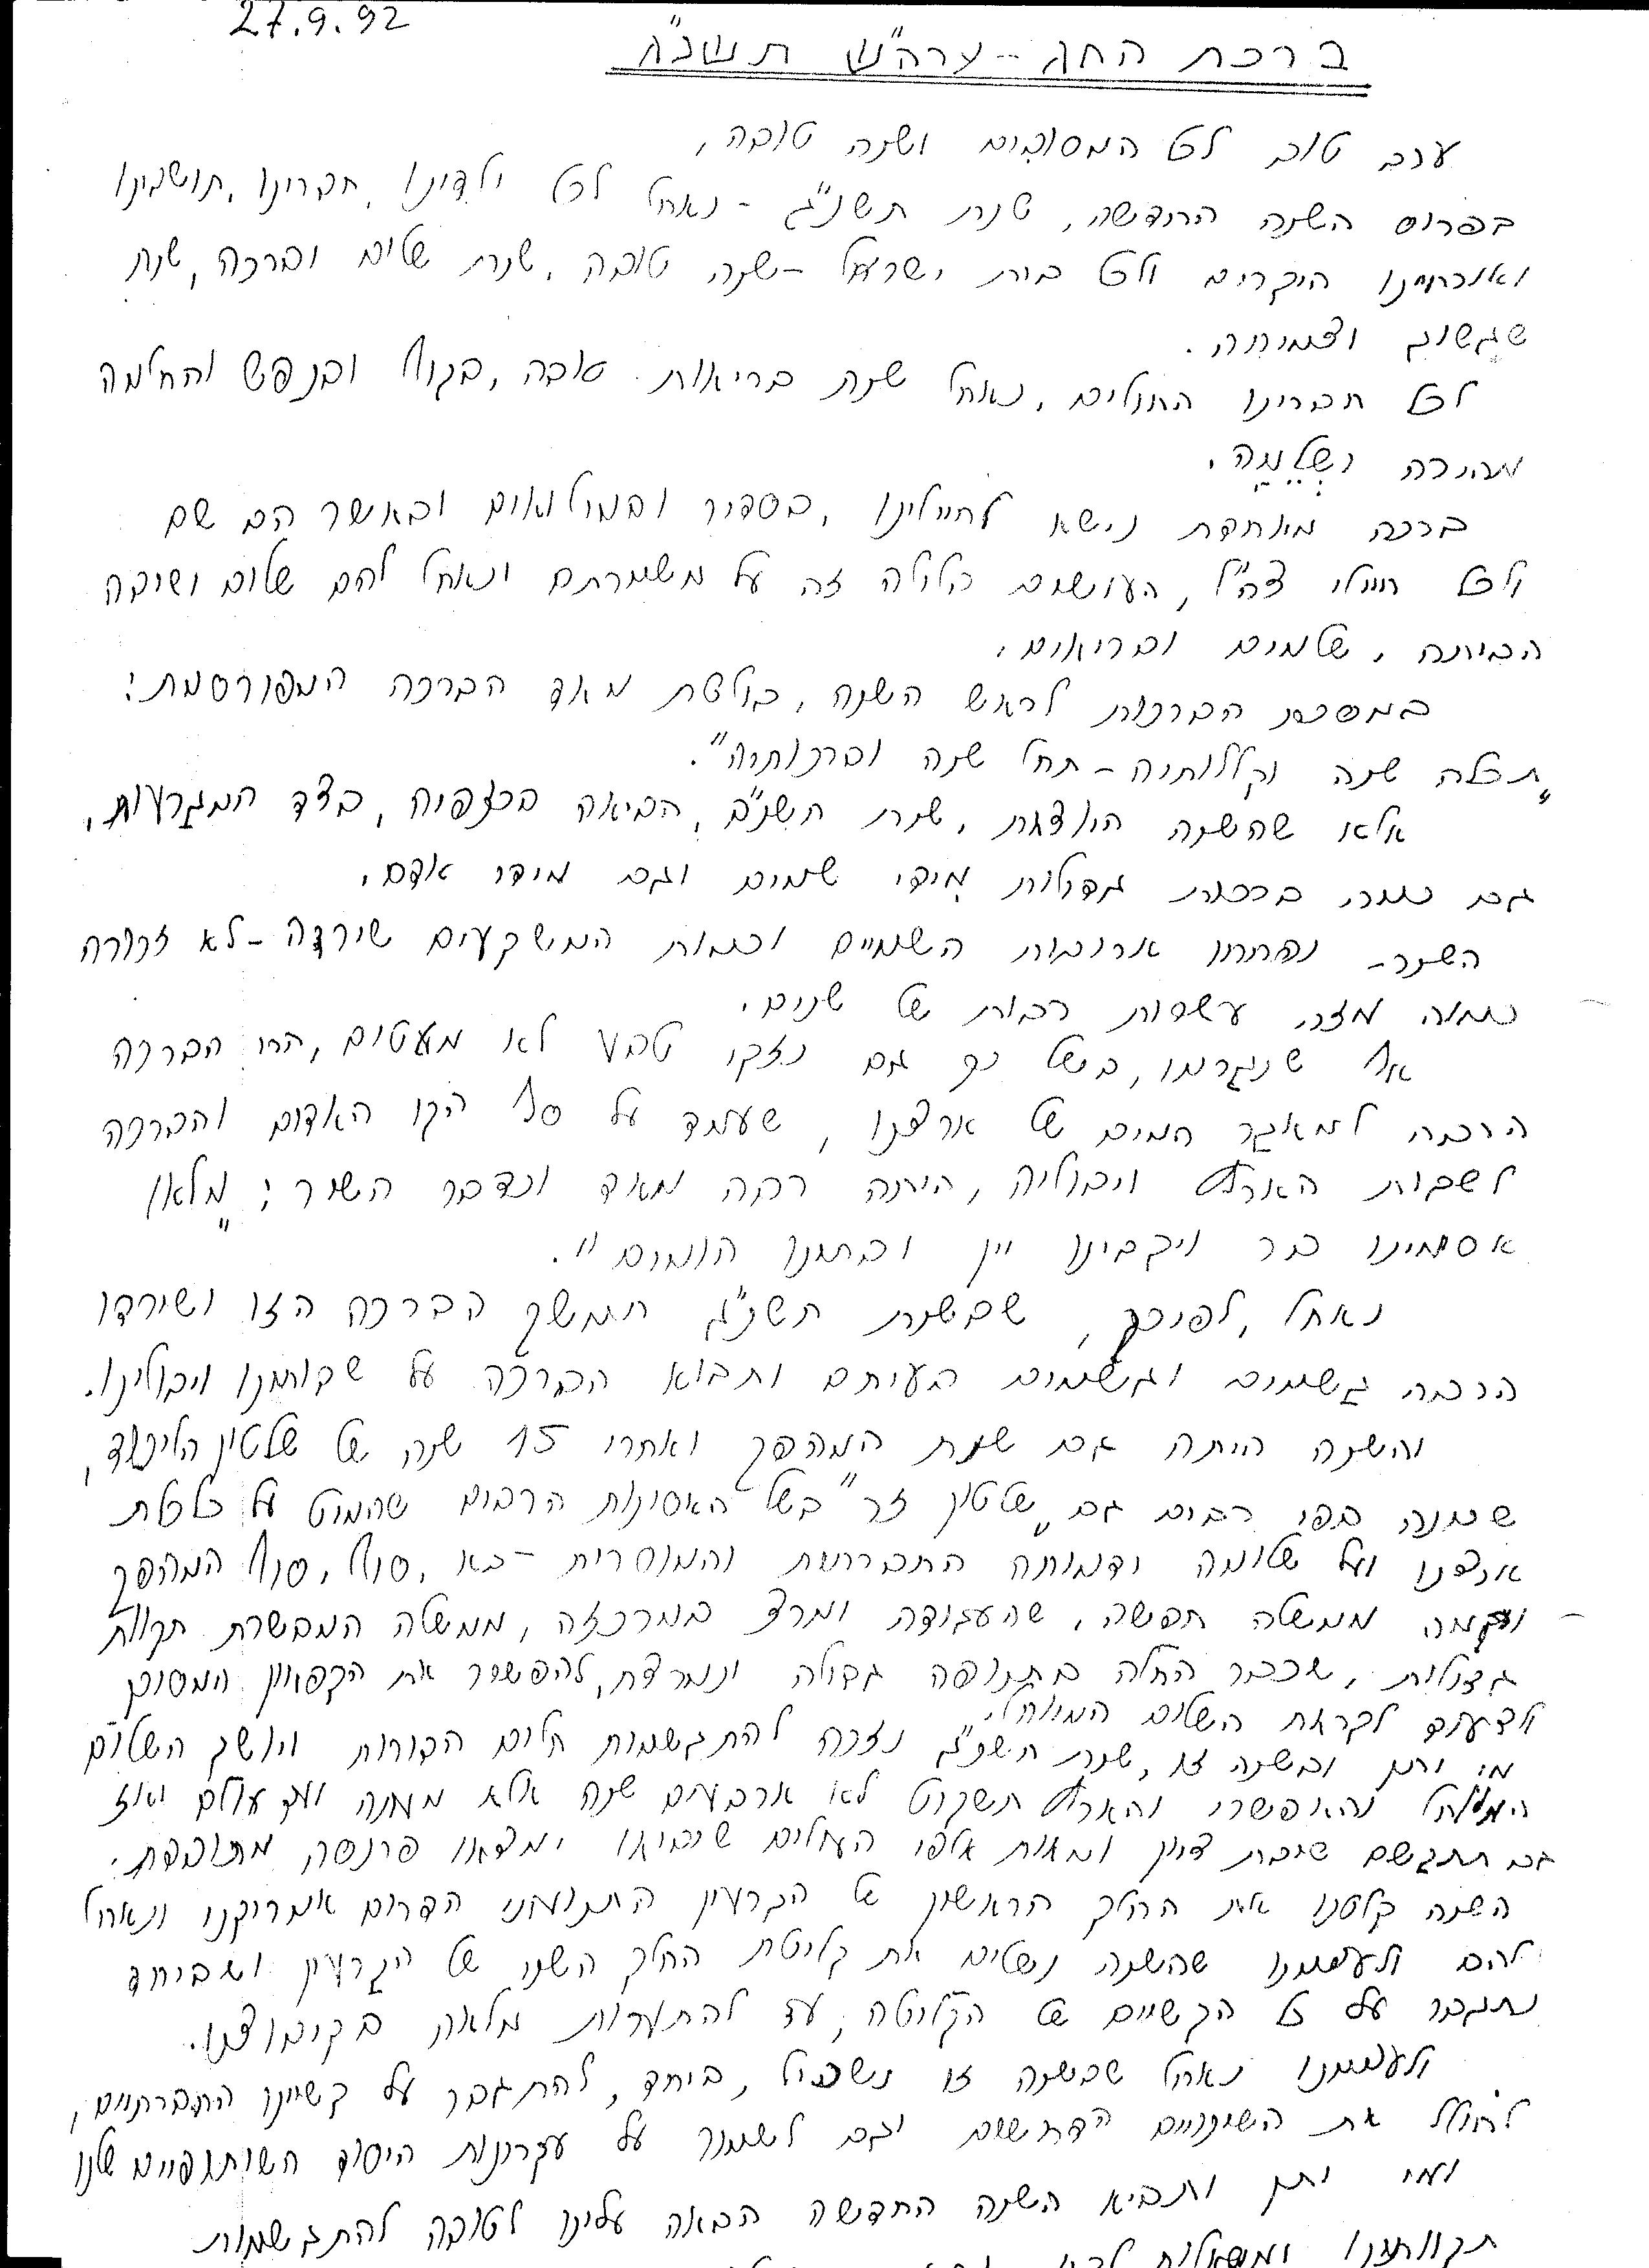 27.9.92
ברכת החג - ערה"ש תשנ"ג
ערב טוב לכל המסובים ושנה טובה,
בפרוס השנה החדשה, שנת תשנ"ג - נאחל לכל ילדינו, חברינו, תושבינו
ואורחינו היקרים ולכל בית ישראל - שנה טובה, שנת שלום וברכה, שנת
שגשוג וצמיחה.
לכל חברינו החולים, נאחל שנת בריאות טובה, בגוף ובנפש והחלמה
מהירה ושְלֵמָה.
ברכה מיוחדת נישא לחיילינו, בסדיר ובמילואים ובאשר הם שם
ולכל חיילי צה"ל, העושים בלילה זה על משמרתם ונאחל להם שלום ושיבה
הביתה, שלמים ובריאים.
במסכת הברכות לראש השנה, בולטת מאד הברכה המפורסמת:
"תכלה שנה וקללותיה - תחל שנה וברכותיה".
אלא שהשנה היוצאת, שנת תשנ"ב, הביאה בכנפיה, בצד המגרעות,
גם כמה ברכות גדולות מִידי שמים וגם מידי אדם.
השנה - נפתחו ארובות השמיים וכמות המישקעים שירדה - לא זכורה
כמוה מזה עשרות רבות של שנים.
אף שנגרמו, בשל כך גם נזקי טבע לא מעטים, הרי הברכה
הרבה למאגר המים של ארצנו, שעמד על סף הקו האדום והברכה
לשדות הארץ ויבוליה, היתה רבה מאוד וכדבר השיר: "מלאו
אסמינו בר ויקבינו יין ובתינו הומים".
נאחל, לפיכך, שבשנת תשנ"ג תמשך הברכה הזו ושירדו
הרבה גשמים וגשמים בעיתם ותבוא הברכה על שדותינו ויבולינו.
והשנה היתה גם שנת המהפך ואחרי 15 שנה של שלטון הליכוד,
שכונה בפי רבים גם "שלטון זר" בשל האסונות הרבים שהמיט על כלכלת
ארצנו ועל שלומה ודמותה החברתית והמוסרית - בא, סוף, סוף המהפך
וקמה ממשלה חדשה, שהעבודה ומרצ במרכזה, ממשלה המבשרת תקוות
גדולות, שכבר החלה בתנופה גדולה ונמרצת, להפשיר את הקפאון המסוכן
ולצעוד לקראת השלום המיוחל.
מי יתן ובשנה זו, שנת תשנ"ג נזכה להתגשמות חלום הדורות ויושג השלום
המיוחל והאפשרי והארץ תשקוט לא ארבעים שנה אלא מעתה ועד עולם ואז
גם תתגשם שיבת ציון ומאות אלפי העולים שיבואו ימצאו פרנסה מכובדת.
השנה קלטנו את החלק הראשון של הגרעין התנועתי הדרום אמריקני ונאחל
להם ולעצמנו שהשנה נשלים את קליטת החלק השני של הגרעין ושביחד
נתגבר על כל הקשיים של הקליטה, עד להתערות מלאה בקיבוצנו.
ולעצמנו נאחל שבשנה זו נשכיל, ביחד, להתגבר על קשיינו החברתיים,
לחולל את השינויים הדרושים וגם לשמור על עקרונות היסוד השיתופיים שלנו
ומי יתן ותביא השנה החדשה הבאה עלינו לטובה להתגשמות
תקוותינו ומשאלות